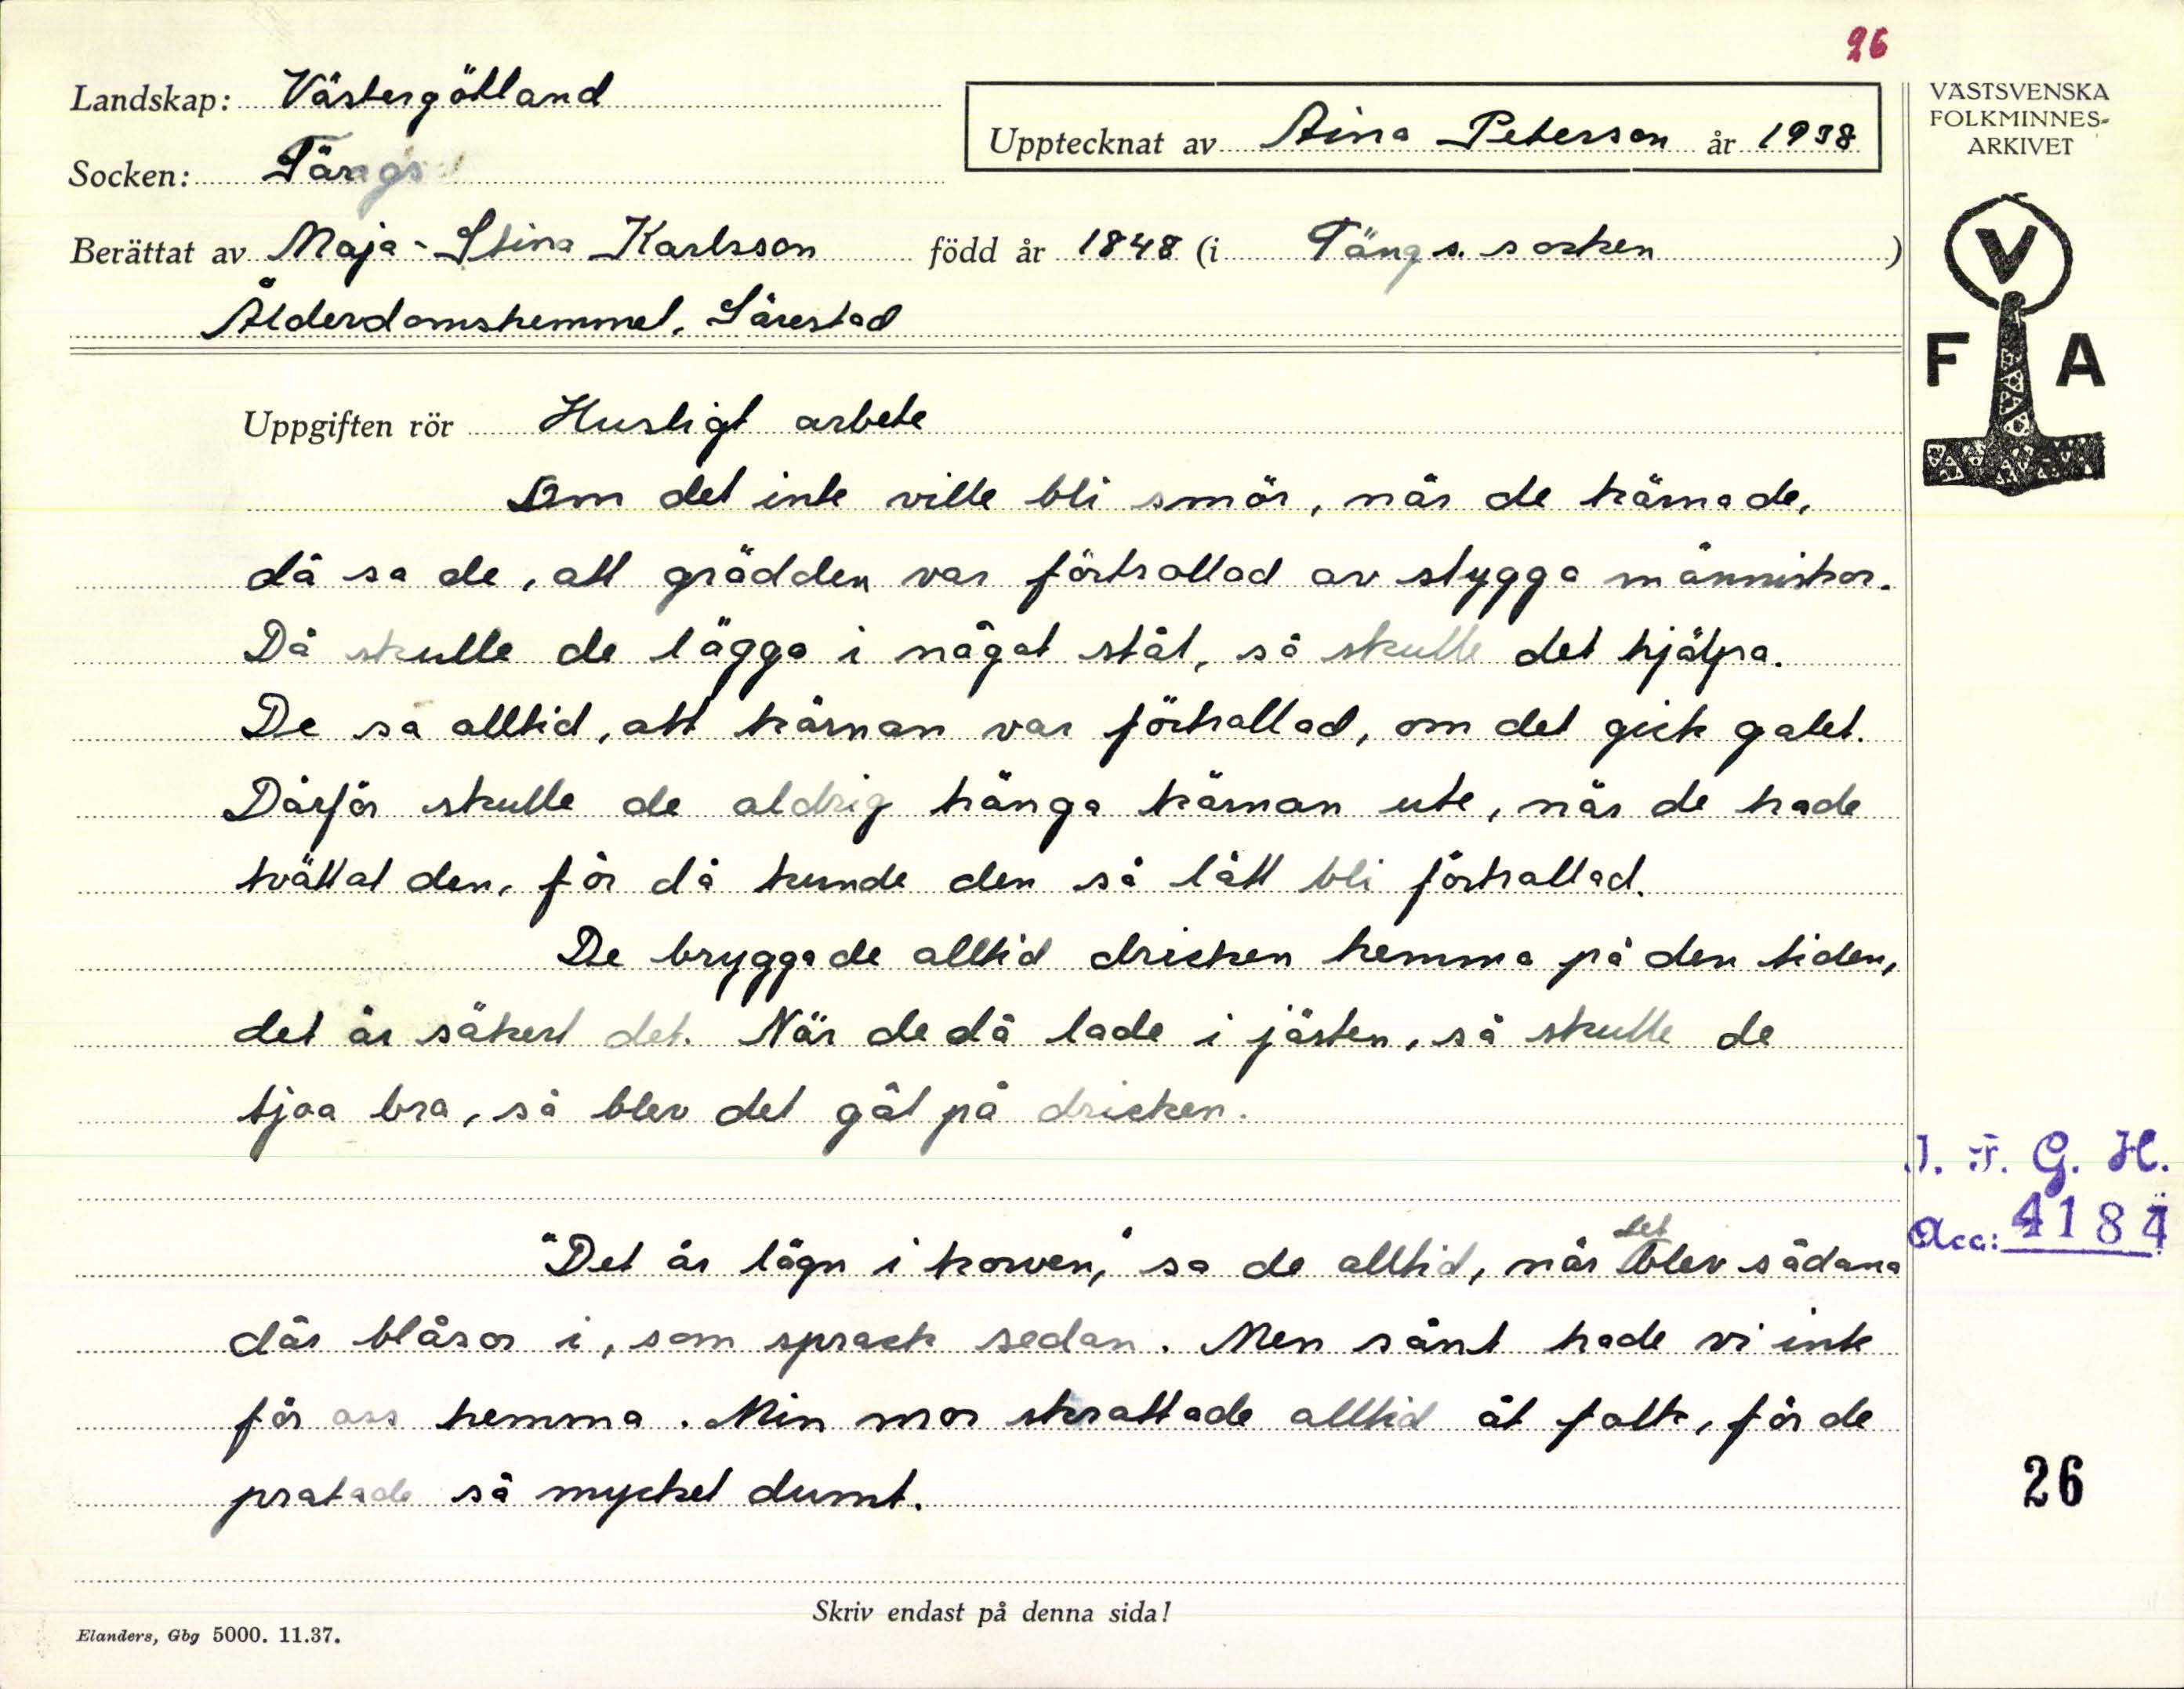 26
Landskap: Västergötland
Upptecknat av Aina Peterson år 1938
VÄSTSVENSKA
FOLKMINNES-
ARKIVET
Socken: Tängs
Berättat av Maja-Stina Karlsson född år 1848 (i Tängs. socken)
Ålderdomshemmet, Särestad
V
F A
Uppgiften rör Husligt arbete
Om det inte ville bli smör, när de kärnade,
då sa de, att grädden var förtrollad av stygga människor.
Då skulle de lägga i något stål, så skulle det hjälpa.
De sa alltid, att kärnan var förtrollad, om det gick galet.
Därför skulle de aldrig hänga kärnan ute, när de hade
tvättat den, för då kunde den så lätt bli förtrollad.
De bryggade alltid dricken hemma på den tiden,
det är säkert det. När de då lade i jästen, så skulle de
tjoa bra, så blev det gåt på dricken.
I. F. G. H.
Acc: 4184
"Det är lögn i korven," sa de alltid, när det blev sådana
där blåsor i, som sprack sedan. Men sånt hade vi inte
för oss hemma. Min mor skrattade alltid åt folk, för de
pratade så mycket dumt.
26
Skriv endast på denna sida!
Elanders, Gbg 5000. 11.37.